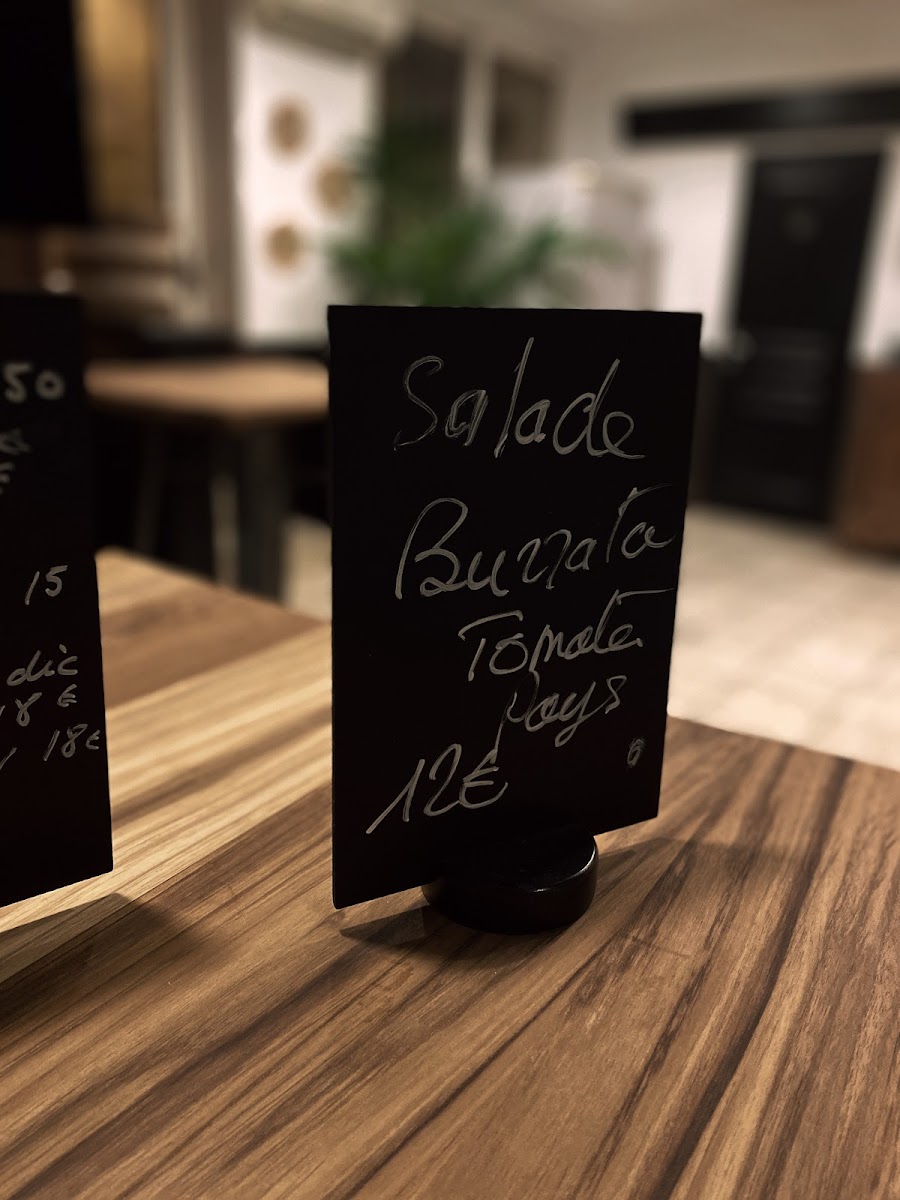 50
15
dic
18€
18€
Salade
Burrata
Tomate
Pays
12€